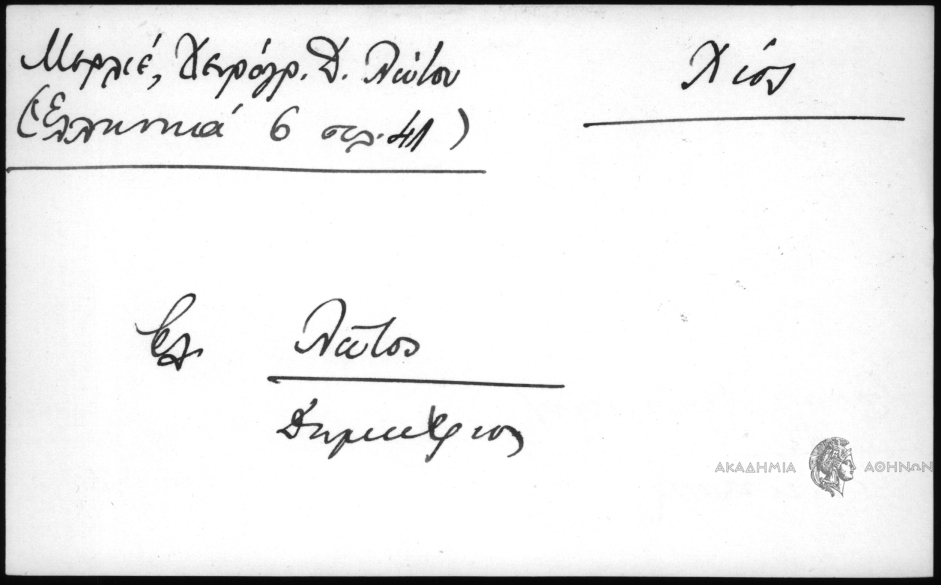 Μερλιέ, Χειρόγρ. Δ. Λώτου
(Ἑλληνικά 6 σελ. 41)
Χίος
ἐπ. Λῶτος
Δημήτριος
ΑΚΑΔΗΜΙΑ ΑΘΗΝΩΝ